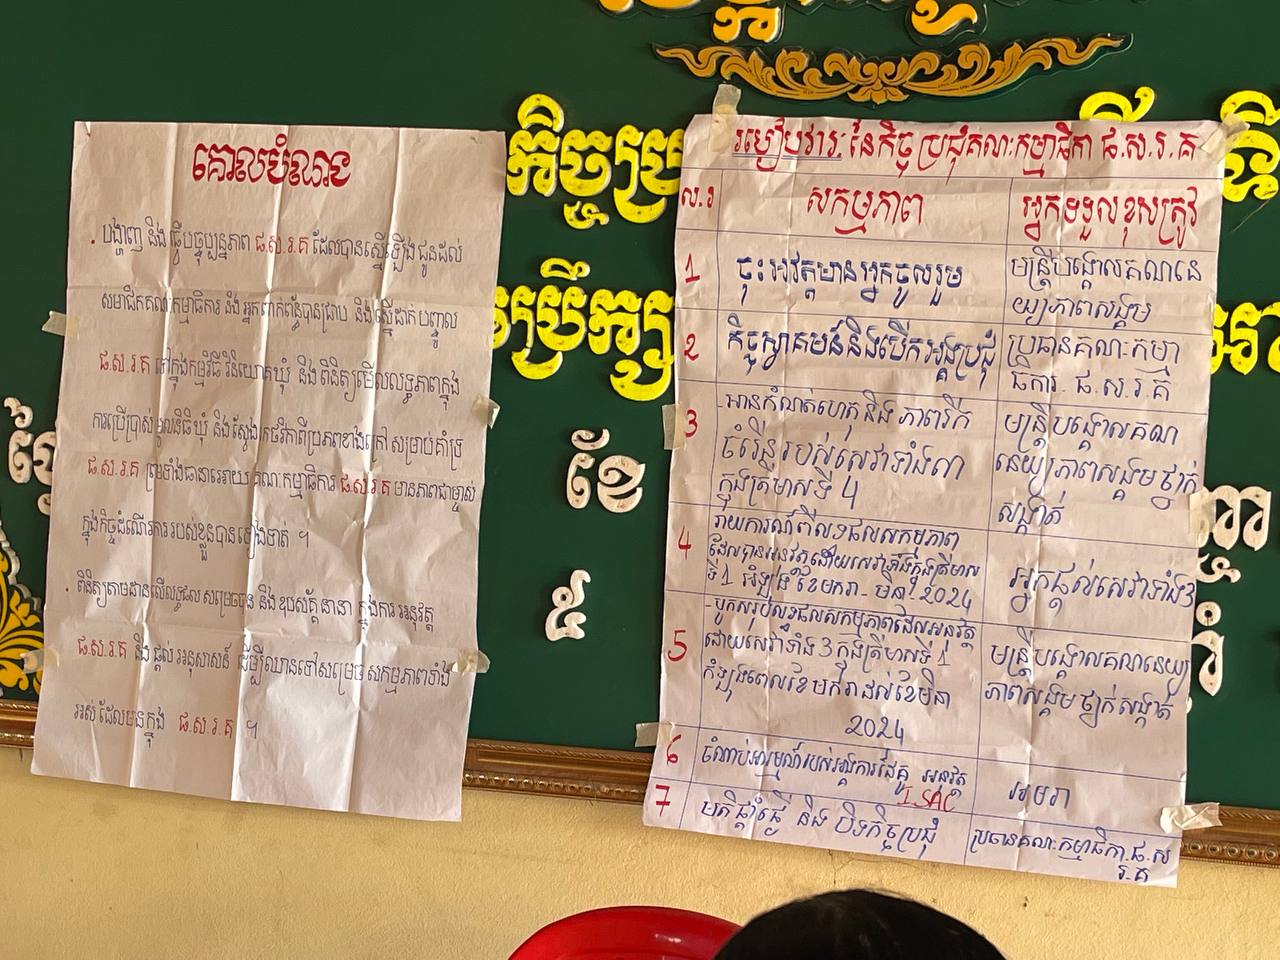 គោលបំណង
• បង្ហាញ និង ធ្វើបច្ចុប្បន្នភាព ផ.ស.រ.គ ដែលបានស្នើឡើង ជូនដល់
សមាជិកគណៈកម្មាធិការ និង អ្នកពាក់ព័ន្ធបានជ្រាប និងស្នើដាក់បញ្ចូល
ផ.ស.រ.គ ទៅក្នុងកម្មវិធី វិនិយោគឃុំ និង ពិនិត្យមើលលទ្ធភាពក្នុង
ការប្រើប្រាស់មូលនិធិឃុំ និងស្វែងរកថវិកាពីប្រភពខាងក្រៅ សម្រាប់គាំទ្រ
ផ.ស.រ.គ ព្រមទាំងធានាអោយ គណៈកម្មាធិការ ផ.ស.រ.គ មានភាពជាម្ចាស់
ក្នុងកិច្ចដំណើរការរបស់ខ្លួនបានទៀងទាត់ ។
• ពិនិត្យតាមដានលើលទ្ធផលសម្រេចបាន និង ឧបសគ្គនានា ក្នុងការអនុវត្ត
ផ.ស.រ.គ និង ផ្តល់អនុសាសន៍ ដើម្បីឈានទៅសម្រេចសកម្មភាពទាំង
អស់ដែលមានក្នុង ផ.ស.រ.គ ។
កិច្ចប្រ
ប្រឹក្សា
ខែ
៥
របៀបវារៈ នៃកិច្ចប្រជុំគណៈកម្មាធិកា ផ.ស.រ.គ
ល.រ សកម្មភាព អ្នកទទួលខុសត្រូវ
1 ចុះអវត្តមានអ្នកចូលរួម មន្ត្រីបង្គោលគណនេ
យ្យភាពសង្គម
2 កិច្ចស្វាគមន៍ និងបើកអង្គប្រជុំ ប្រធានគណៈកម្មា
ធិការ ផ.ស.រ.គ
3 - អានកំណត់ហេតុ និង ភាពរីក មន្ត្រីបង្គោលគណ
ចំរើនរបស់សេវាទាំង៣ នេយ្យភាពសង្គមថ្នាក់
ក្នុងត្រីមាសទី 4 សង្កាត់
4 រាយការណ៍ពីលទ្ធផលសកម្មភាព
ដែលបានអនុវត្តដោយសេវាទាំង៣ក្នុងត្រីមាស អ្នកផ្តល់សេវាទាំង3
ទី1 អំឡុងខែមករា - មីនា 2024
5 - បូកសរុបលទ្ធផលសកម្មភាពដែលអនុវត្ត
ដោយសេវាទាំង 3 ក្នុងត្រីមាសទី 1 មន្ត្រីបង្គោលគណនេយ្យ
កំឡុងពេលខែមករាដល់ខែមីនា ភាពសង្គមថ្នាក់សង្កាត់
2024
6 ចំណាប់អារម្មណ៍របស់អង្គការដៃគូ អនុវត្ត
ISAC អមរា
7 មតិផ្តាំផ្ញើ និង បិទកិច្ចប្រជុំ ប្រធានគណៈកម្មាធិកា ផ.ស
រ.គ